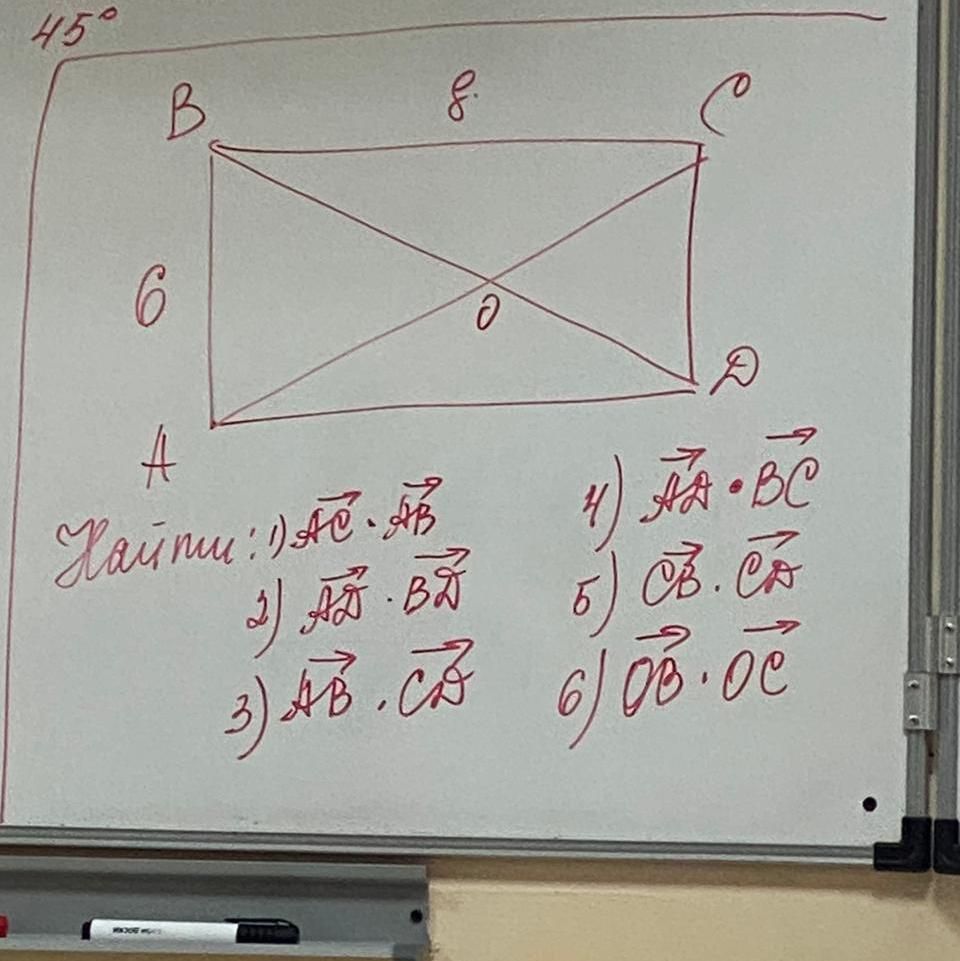 45°
B 8 C
6
O
A D
Найти: 1) AC⃗ · AB⃗
2) AD⃗ · BD⃗
3) AB⃗ · CD⃗
4) AD⃗ · BC⃗
5) CB⃗ · CD⃗
6) OB⃗ · OC⃗